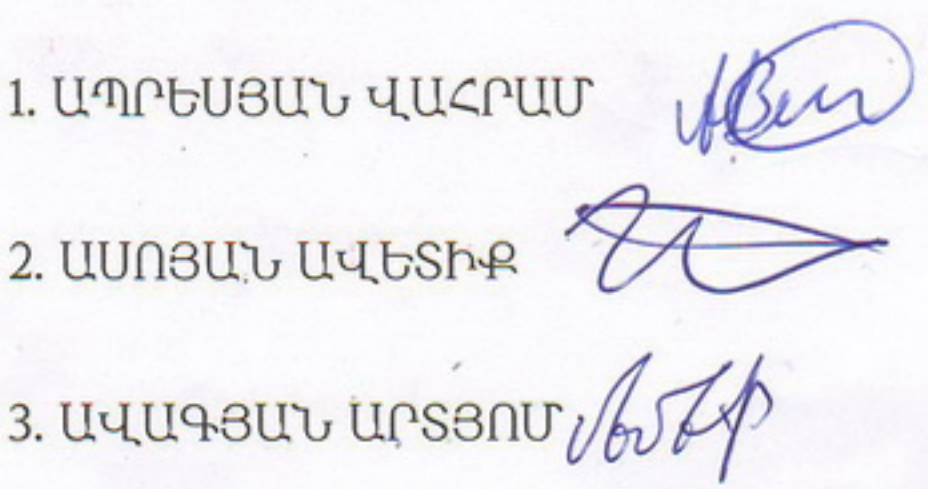 1. ԱՊՐԵՍՅԱՆ ՎԱՀՐԱՄ
2. ԱՍՈՅԱՆ ԱՎԵՏԻՔ
3. ԱՎԱԳՅԱՆ ԱՐՏՅՈՄ